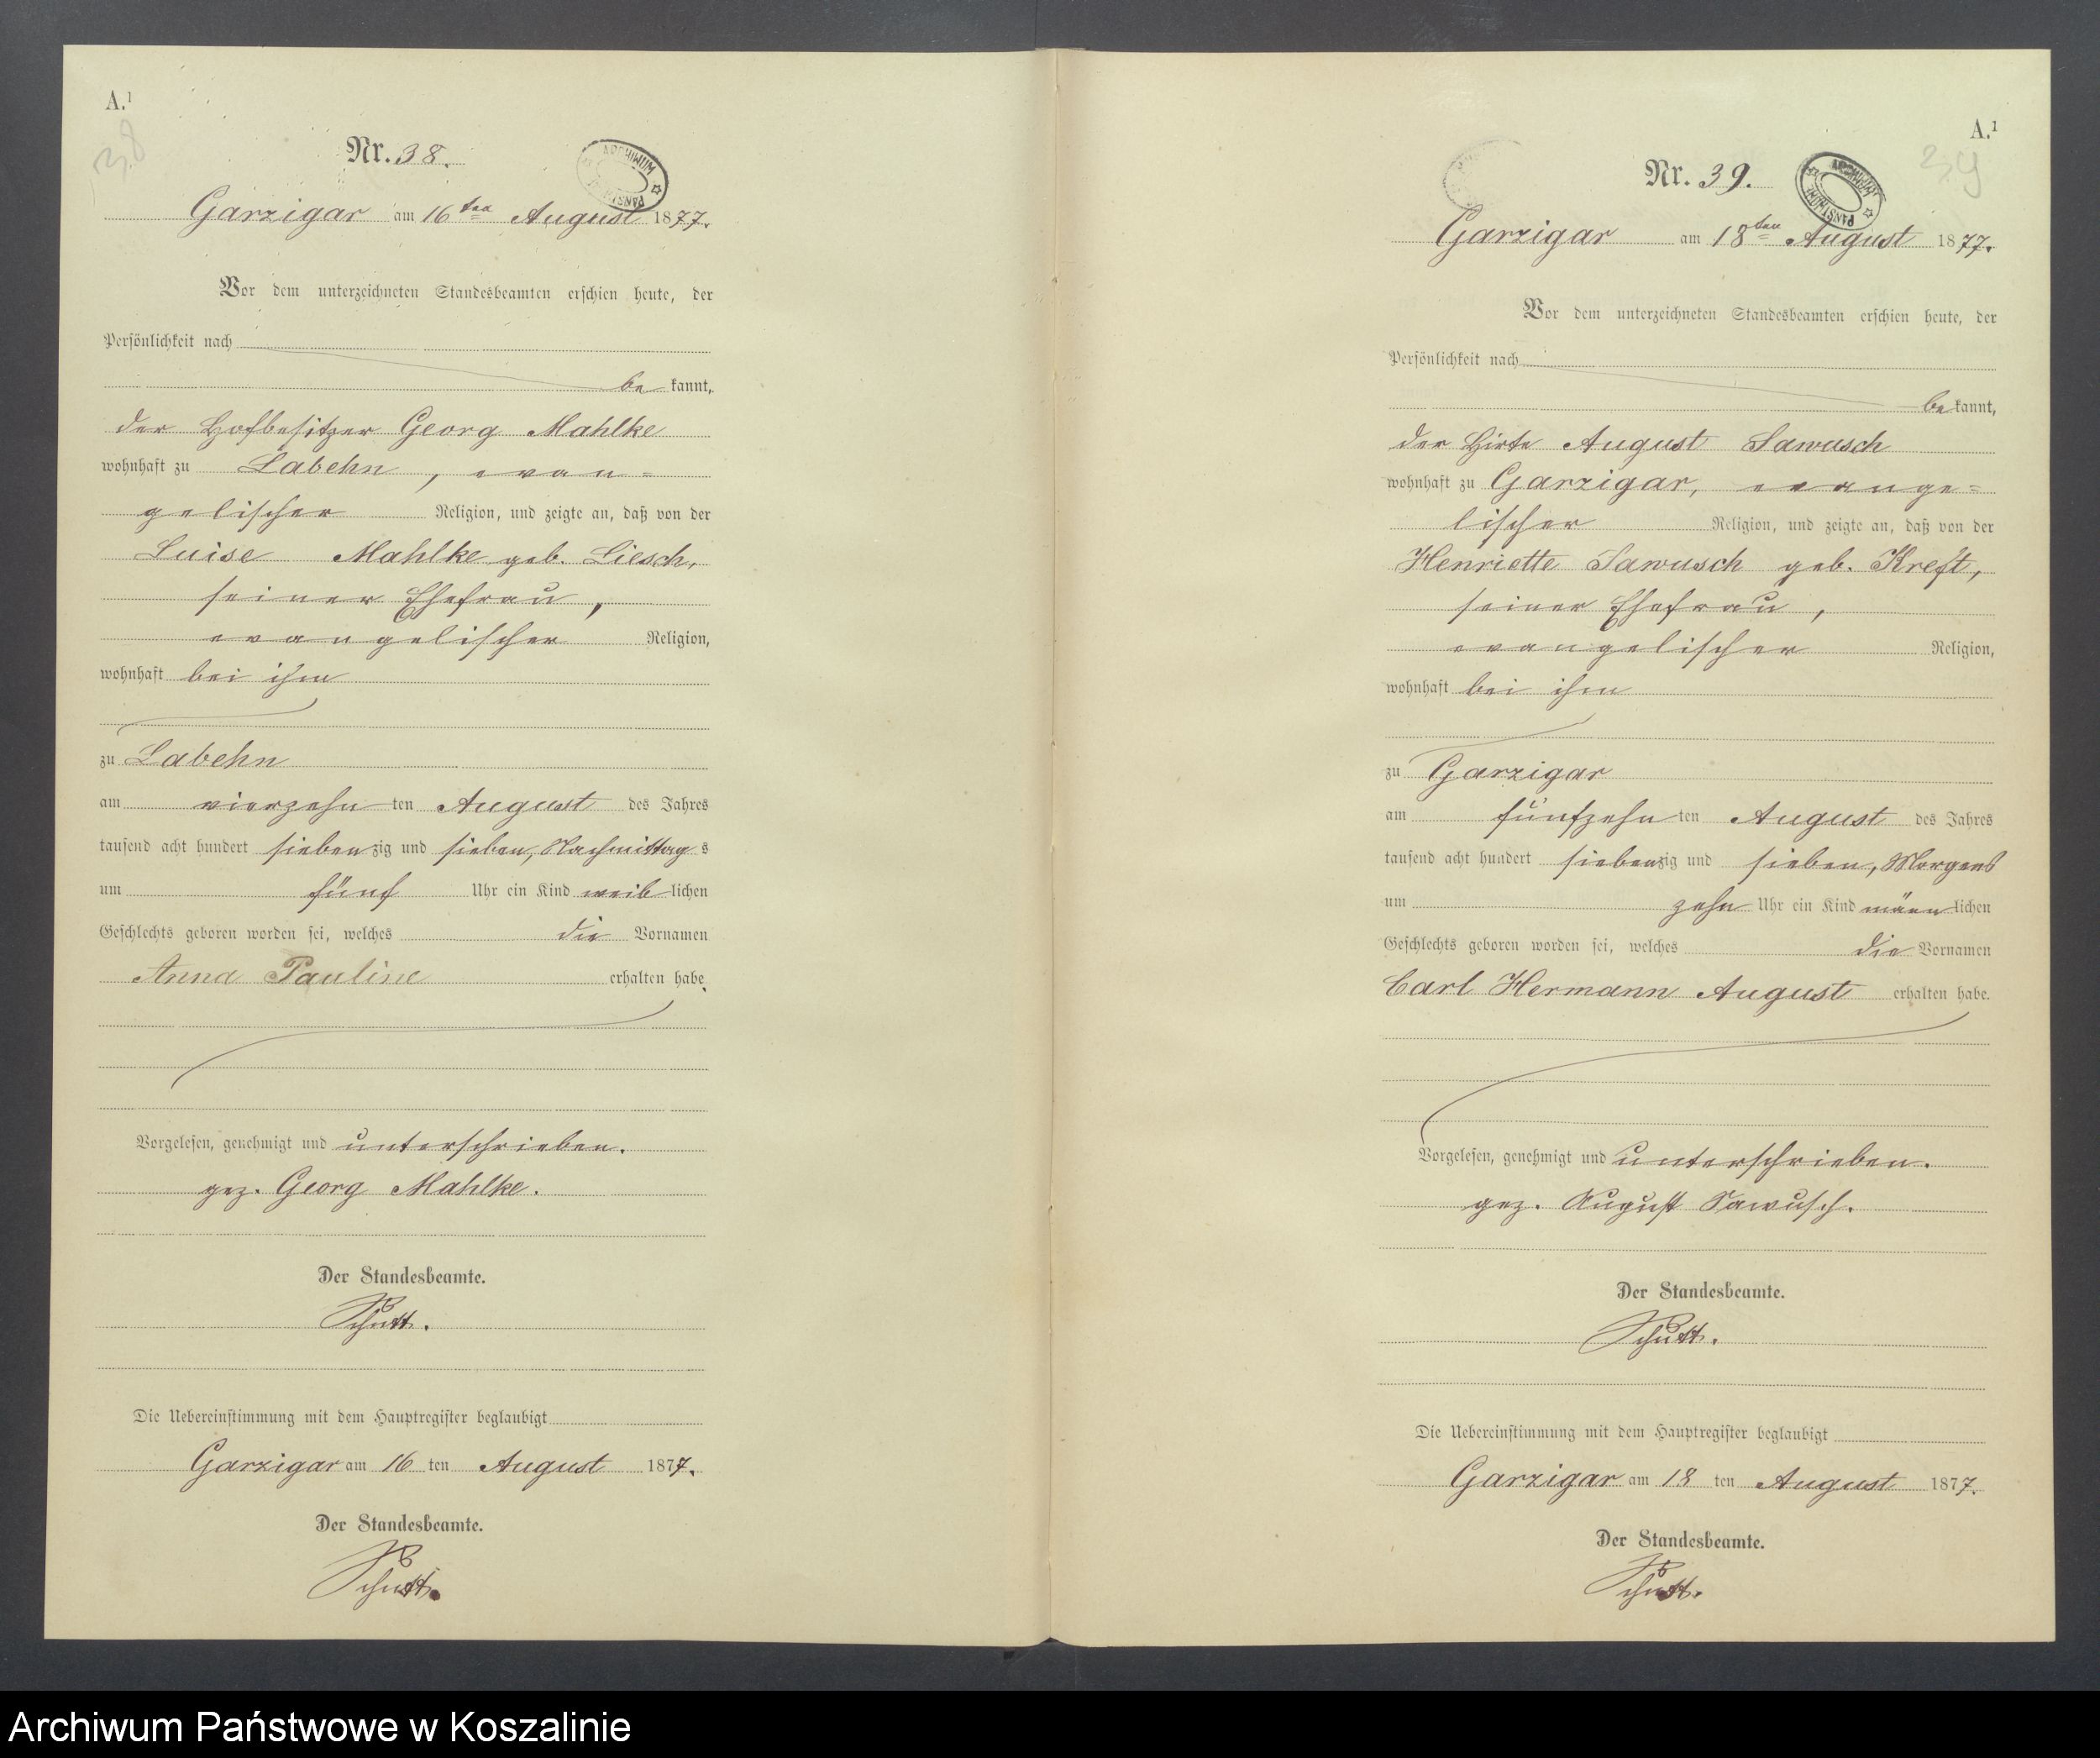 A.¹
38
Nr. 38.
ARCHIWUM PAŃSTWOWE
Garzigar am 16ten August 1877.
Vor dem unterzeichneten Standesbeamten erschien heute, der
Persönlichkeit nach
be kannt,
der Hofbesitzer Georg Mahlke
wohnhaft zu Labehn, evan=
gelischer Religion, und zeigte an, daß von der
Luise Mahlke geb. Liesch,
seiner Ehefrau,
evangelischer Religion,
wohnhaft bei ihm
zu Labehn
am vierzehn ten August des Jahres
tausend acht hundert sieben zig und sieben, Nachmittag s
um fünf Uhr ein Kind weib lichen
Geschlechts geboren worden sei, welches die Vornamen
Anna Pauline erhalten habe.
Vorgelesen, genehmigt und unterschrieben.
gez. Georg Mahlke.
Der Standesbeamte.
Schütt.
Die Uebereinstimmung mit dem Hauptregister beglaubigt
Garzigar am 16 ten August 1877.
Der Standesbeamte.
Schütt.
A.¹
39
Nr. 39.
ARCHIWUM PAŃSTWOWE
Garzigar am 18ten August 1877.
Vor dem unterzeichneten Standesbeamten erschien heute, der
Persönlichkeit nach
be kannt,
der Hirte August Sawusch
wohnhaft zu Garzigar, evange=
lischer Religion, und zeigte an, daß von der
Henriette Sawusch geb. Kreft,
seiner Ehefrau,
evangelischer Religion,
wohnhaft bei ihm
zu Garzigar
am fünfzehn ten August des Jahres
tausend acht hundert sieben zig und sieben, Morgens
um zehn Uhr ein Kind männ lichen
Geschlechts geboren worden sei, welches die Vornamen
Carl Hermann August erhalten habe.
Vorgelesen, genehmigt und unterschrieben.
gez. August Sawusch.
Der Standesbeamte.
Schütt.
Die Uebereinstimmung mit dem Hauptregister beglaubigt
Garzigar am 18 ten August 1877.
Der Standesbeamte.
Schütt.
Archiwum Państwowe w Koszalinie